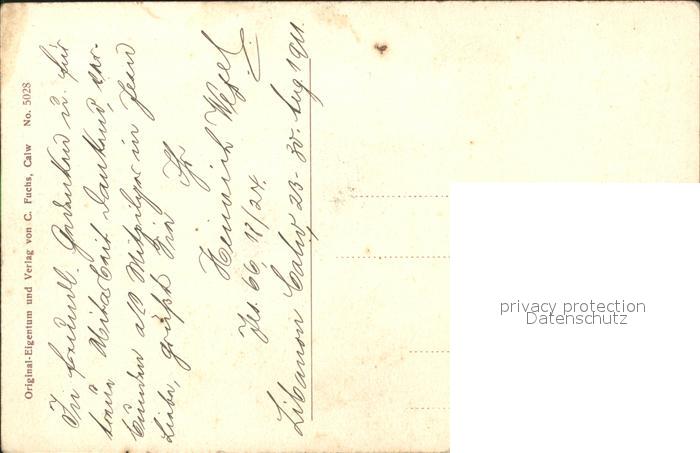 Original-Eigentum und Verlag von C. Fuchs, Calw No. 5028
In freundl. Gedenken u. für
treue Mitarbeit dankend, ver-
bunden als Mitpilger in Jesu
Liebe, grüßt Sie
Ihr
Heinrich
Jes. 66, 18/24.
Libanon Calw, 23-30. Aug. 1911.
privacy protection
Datenschutz